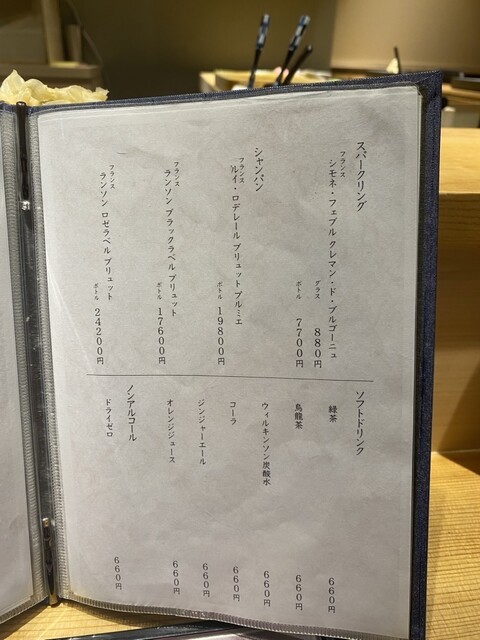 スパークリング
フランス
シモネ・フェブル クレマン・ド・ブルゴーニュ
グラス 880円
ボトル 7700円
シャンパン
フランス
ルイ・ロデレール ブリュット プルミエ
ボトル 19800円
フランス
ランソン ブラックラベル ブリュット
ボトル 17600円
フランス
ランソン ロゼラベル ブリュット
ボトル 24200円
ソフトドリンク
緑茶 660円
烏龍茶 660円
ウィルキンソン炭酸水 660円
コーラ 660円
ジンジャーエール 660円
オレンジジュース 660円
ノンアルコール
ドライゼロ 660円